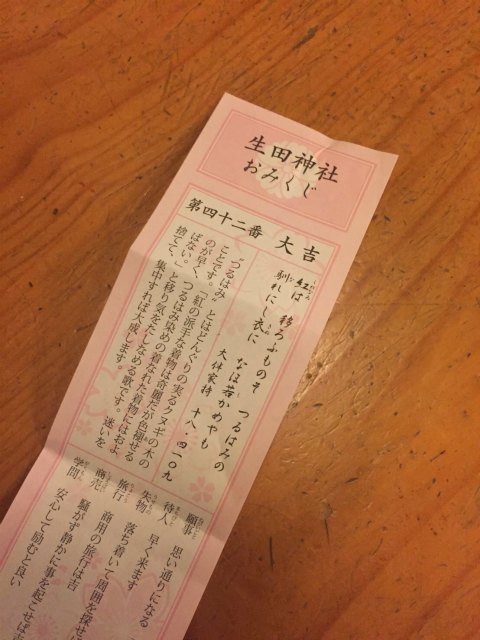 生田神社
おみくじ
第四十二番 大吉
紅は 移ろふものそ つるはみの
馴れにし衣に なほ若かめやも
大伴家持 十八・四一〇九
"つるはみ"とはどんぐりの実るクヌギの木の
ことです。「紅の派手な着物は奇麗だが色褪せる
のが早く、つるはみ染めの着なれた着物にはおよ
ばない。」と移り気をたしなめる歌です。迷いを
捨てて、集中すれば大成します。
願事 思い通りになる
待人 早く来ます
失物 落ち着いて周囲を探せ
旅行 商用の旅行は吉
商売 騒がず静かに事を起こせば吉
学問 安心して励むと良い